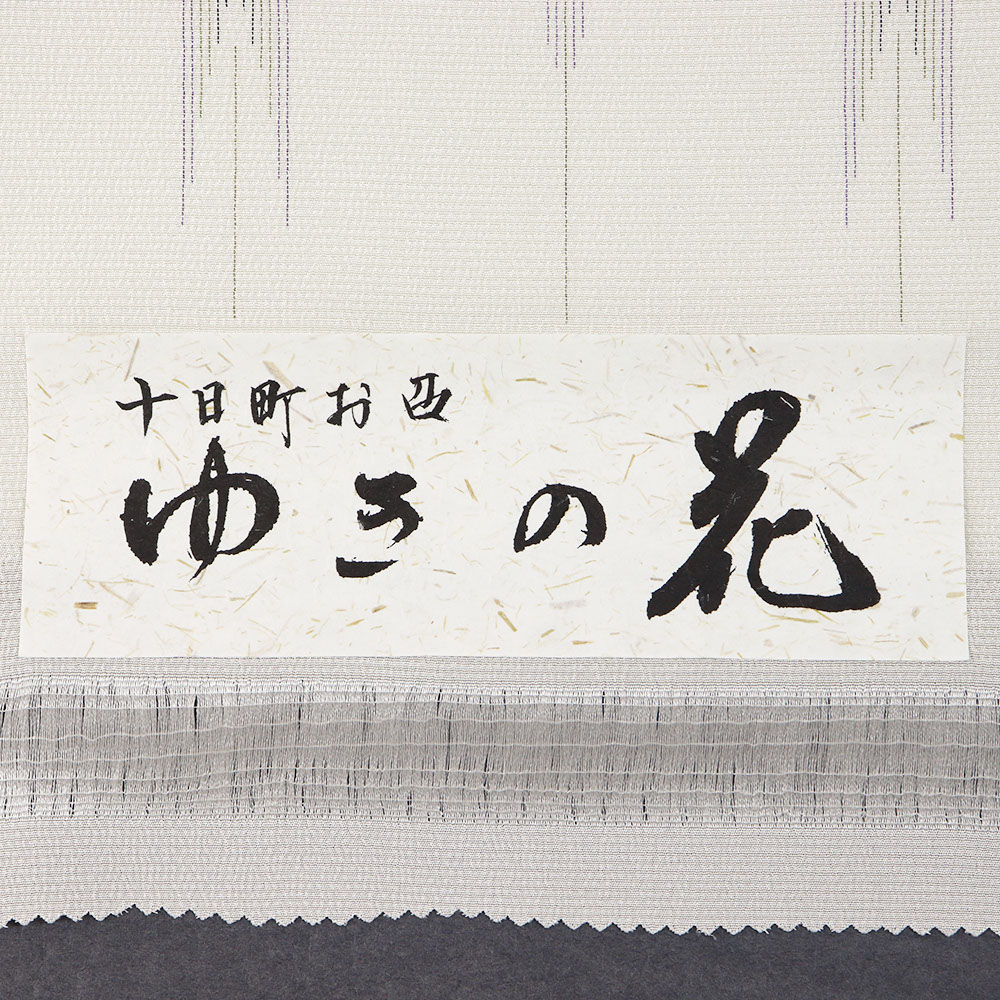 十日町お召
ゆきの花